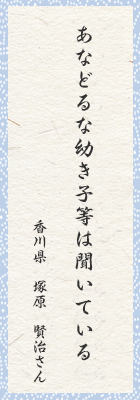 あなどるな幼き子等は聞いている
香川県 塚原 賢治さん